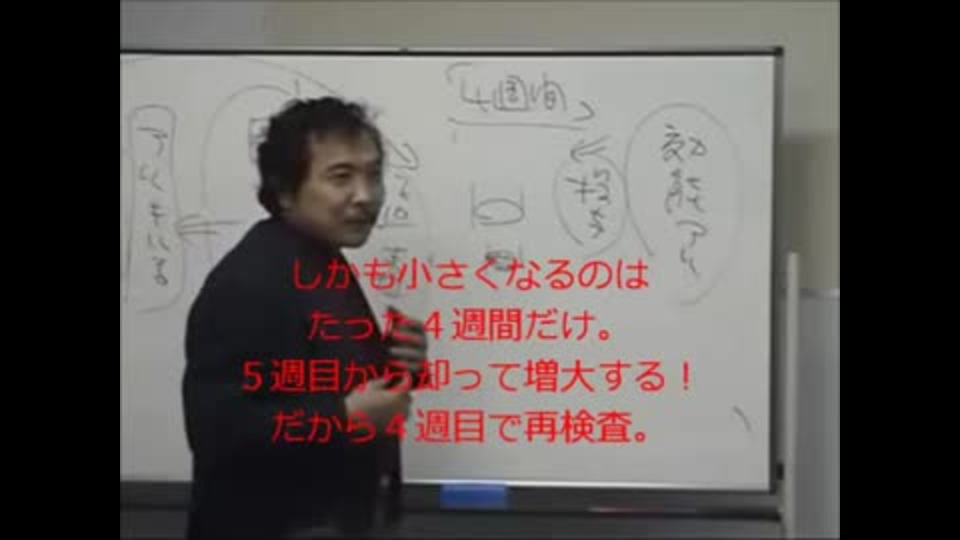 「4週間」
効果アリ
しかも小さくなるのは
たった４週間だけ。
５週目から却って増大する！
だから４週目で再検査。